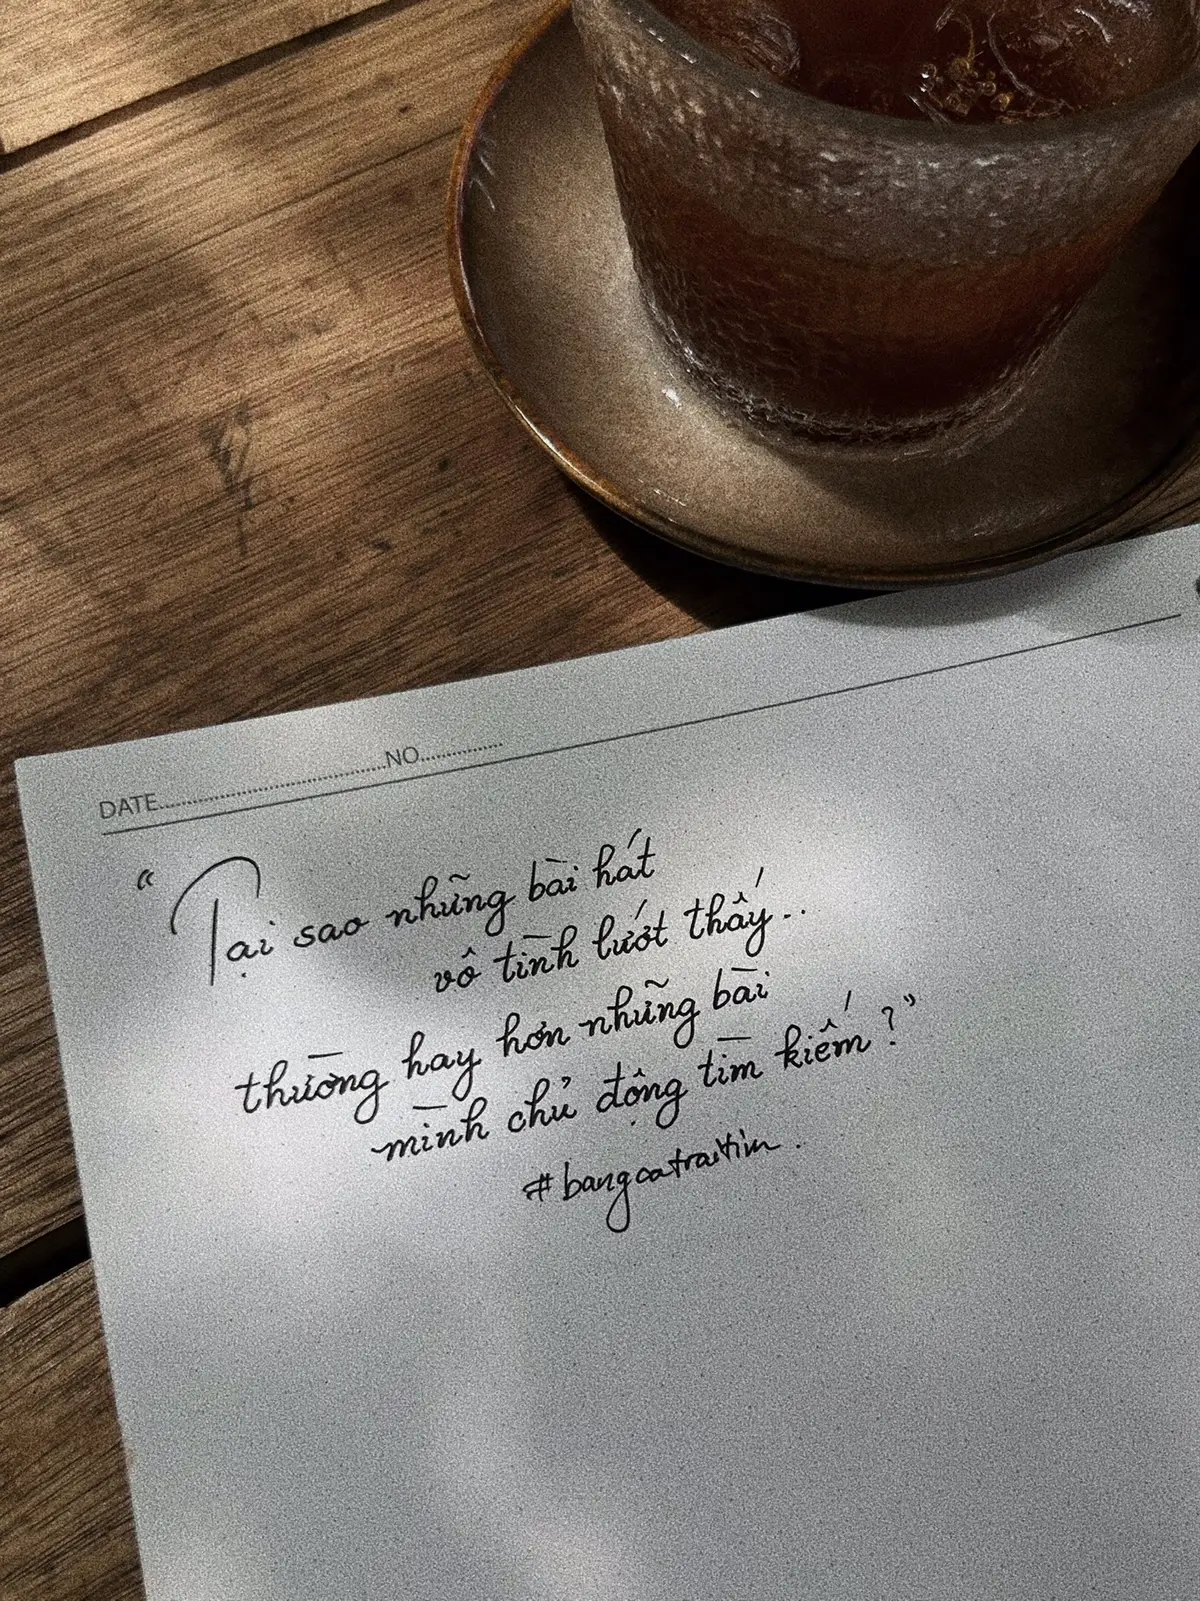 DATE....................................NO..............
“Tại sao những bài hát
vô tình lướt thấy..
thường hay hơn những bài
mình chủ động tìm kiếm?”
#bangcatraitim.